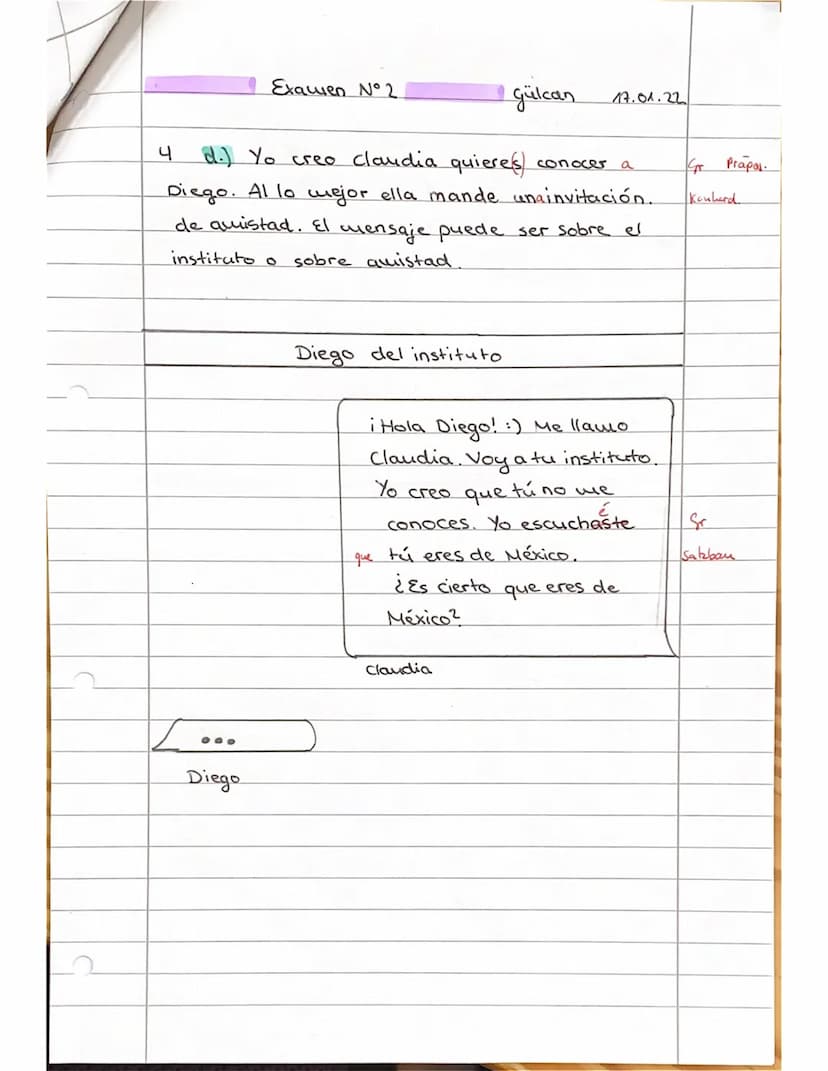 Examen N°2 Gülcan 17.01.22
4 d.) Yo creo Claudia quiere(s) conocer a Gr Präpos.
Diego. Al lo mejor ella mande una invitación. 
de amistad. El mensaje puede ser sobre el
instituto o sobre amistad.
Diego del instituto
¡Hola Diego! :) Me llamo
Claudia. Voy a tu instituto.
Yo creo que tú no me
conoces. Yo escuchaste é Gr
que tú eres de México. Satzbau
¿Es cierto que eres de
México?
Claudia
...
Diego